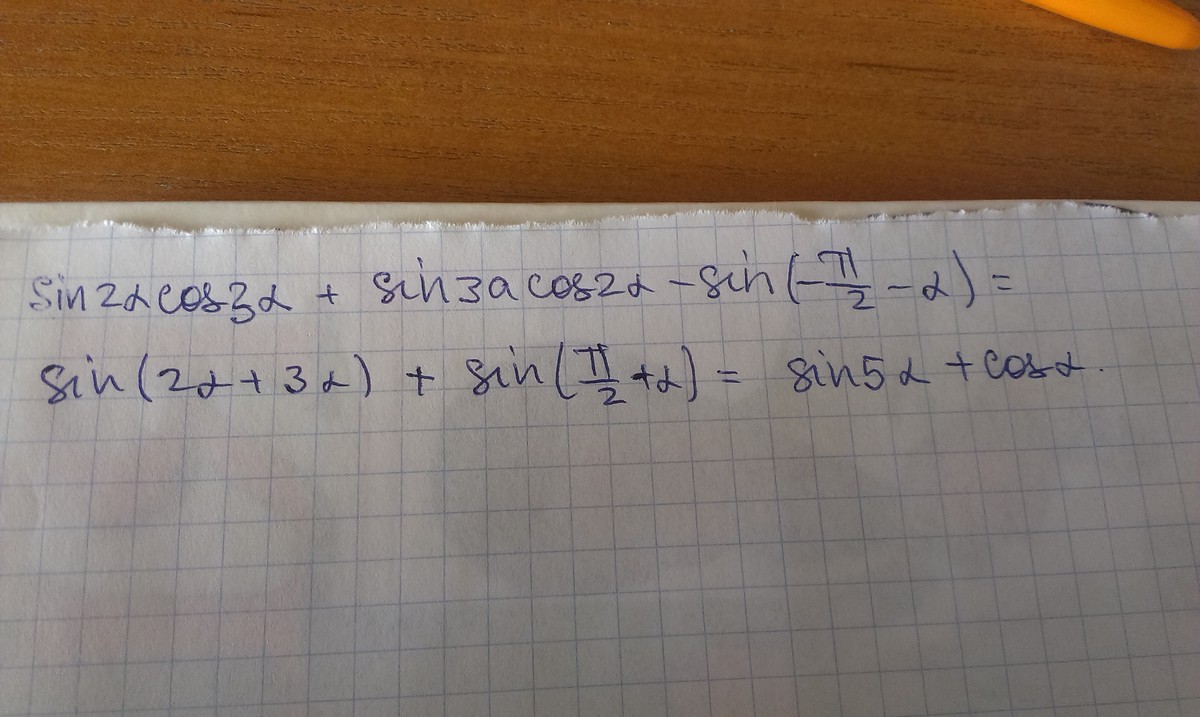 sin2αcos3α + sin3a cos2α - sin(-π/2 - α) =
sin(2α + 3α) + sin(π/2 + α) = sin5α + cosα.